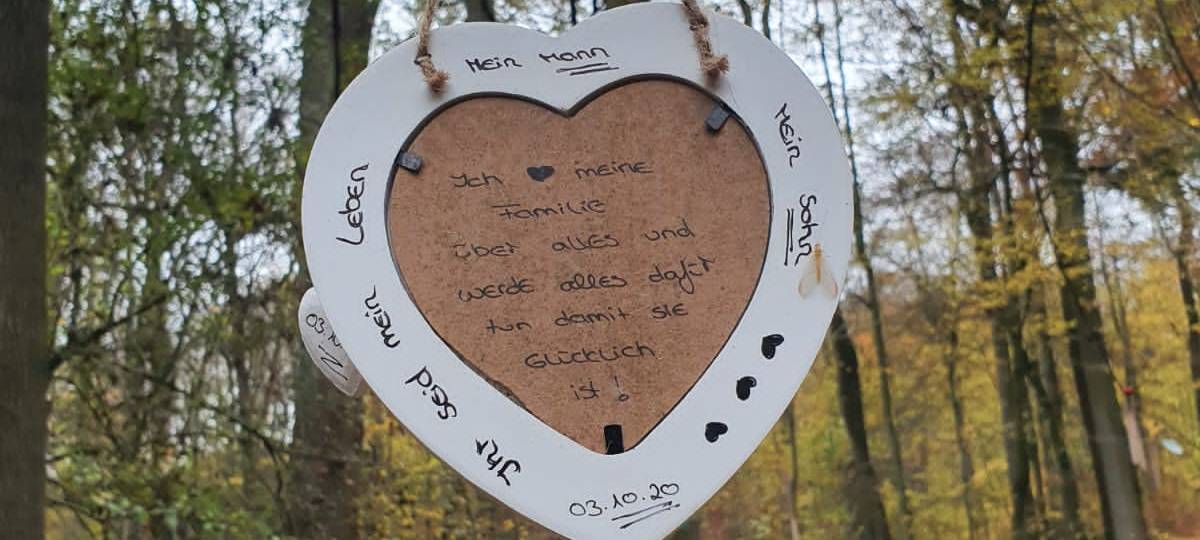 Mein Mann
Mein Sohn
Ich ♥ meine
Familie
über alles und
werde alles dafür
tun damit sie
Glücklich
ist!
Ihr seid mein Leben
03.10.20